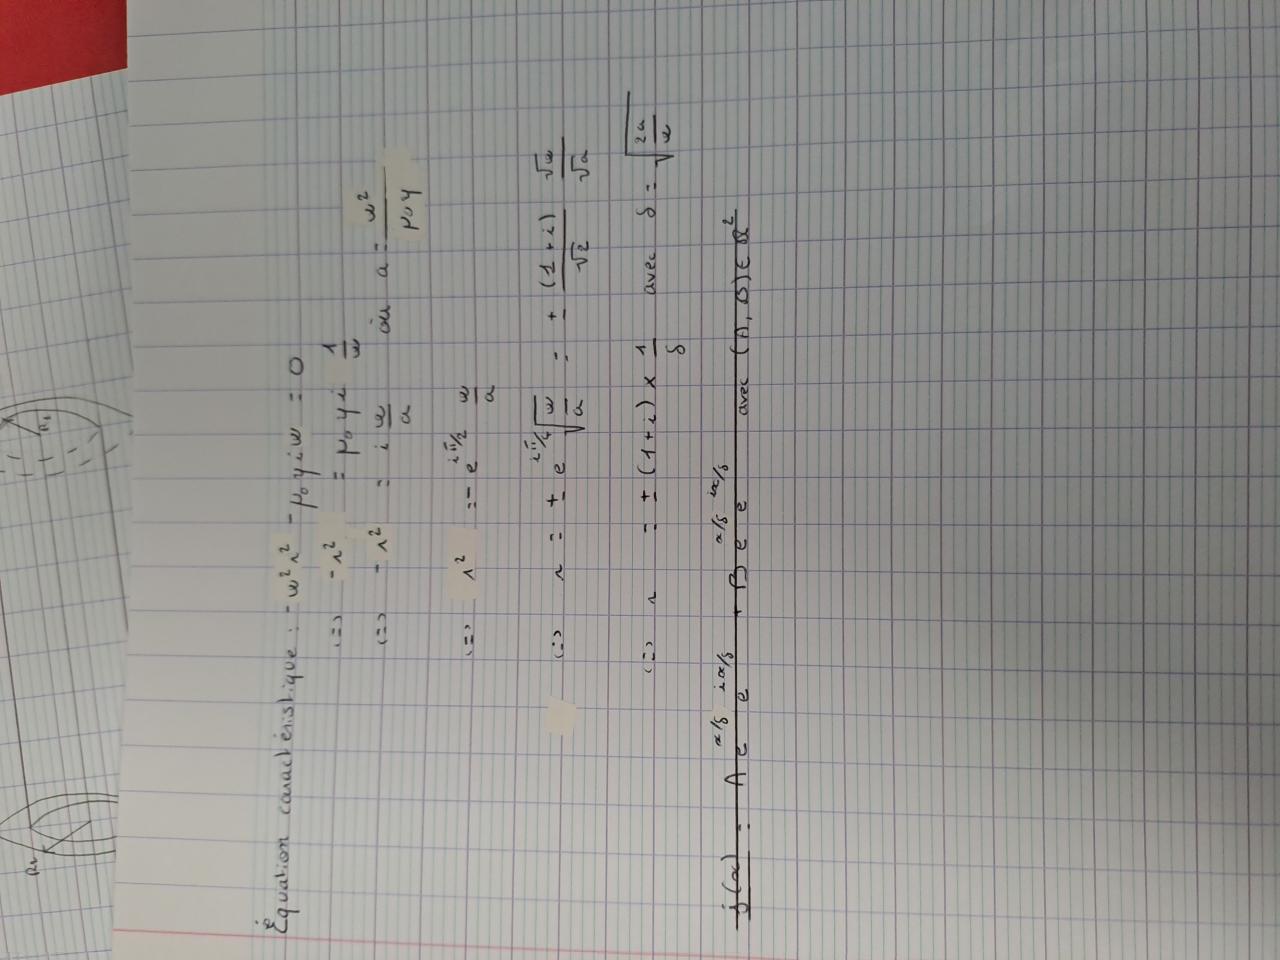 Équation caractéristique : - ω² r² - μ₀ γ i ω = 0
(=) - r² = μ₀ γ i 1/ω
(=) - r² = i ω/a où a = ω²/(μ₀ γ)
(=) r² = - e^(iπ/2) ω/a
(=) r = ± e^(iπ/4) √(ω/a) = ± (1+i)/√2 √ω/√a
(=) r = ± (1+i) × 1/δ avec δ = √(2a/ω)
j(x) = A e^(x/δ) e^(ix/δ) + B e^(x/δ) e^(ix/δ) avec (A, B) ∈ ℝ²
R₂
R₁